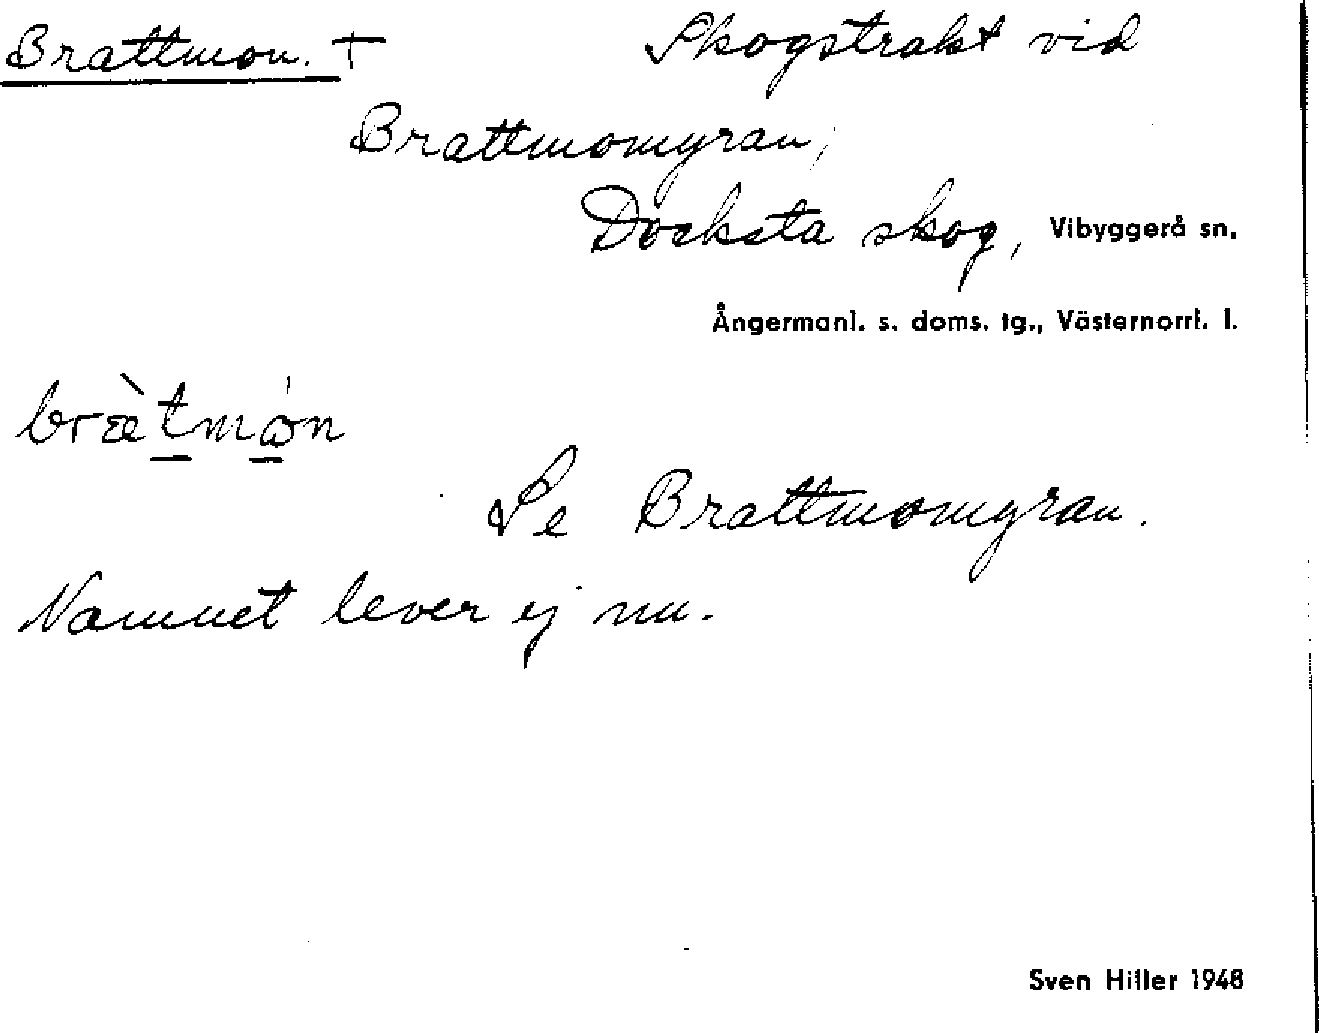 Brattmon. † Skogstrakt vid
Brattmomyran,
Docksta skog, Vibyggerå sn.
Ångermanl. s. doms. tg., Västernorrl. l.
Se Brattmomyran.
Namnet lever ej nu.
Sven Hiller 1948